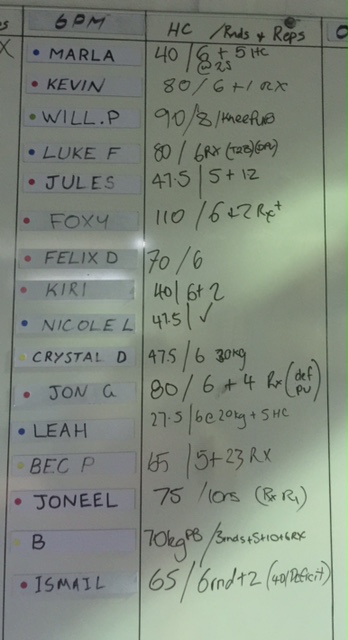 6PM HC / Rnds + Reps
MARLA 40 / 6 + 5 HC
@ 25
KEVIN 80 / 6 + 1 RX
WILL.P 90 / 8 /
LUKE F 80 / 6 RX (T2B)
JULES 47.5 | 5 + 12
FOXY 110 / 6 + 2 Rx+
FELIX D 70 / 6
KIRI 40 | 6 + 2
NICOLE L 47.5 | ✓
CRYSTAL D 47.5 / 6 30kg
JON G 80 / 6 + 4 Rx (def
PU)
LEAH 27.5 | 6 @ 20kg + 5 HC
BEC P 65 | 5 + 23 RX
JONEEL 75 / (Rx R1)
B 70kg PB / 3rnds + 5 + 10 + 6 RX
ISMAIL 65 / 6rnd + 2 (40/Deficit)